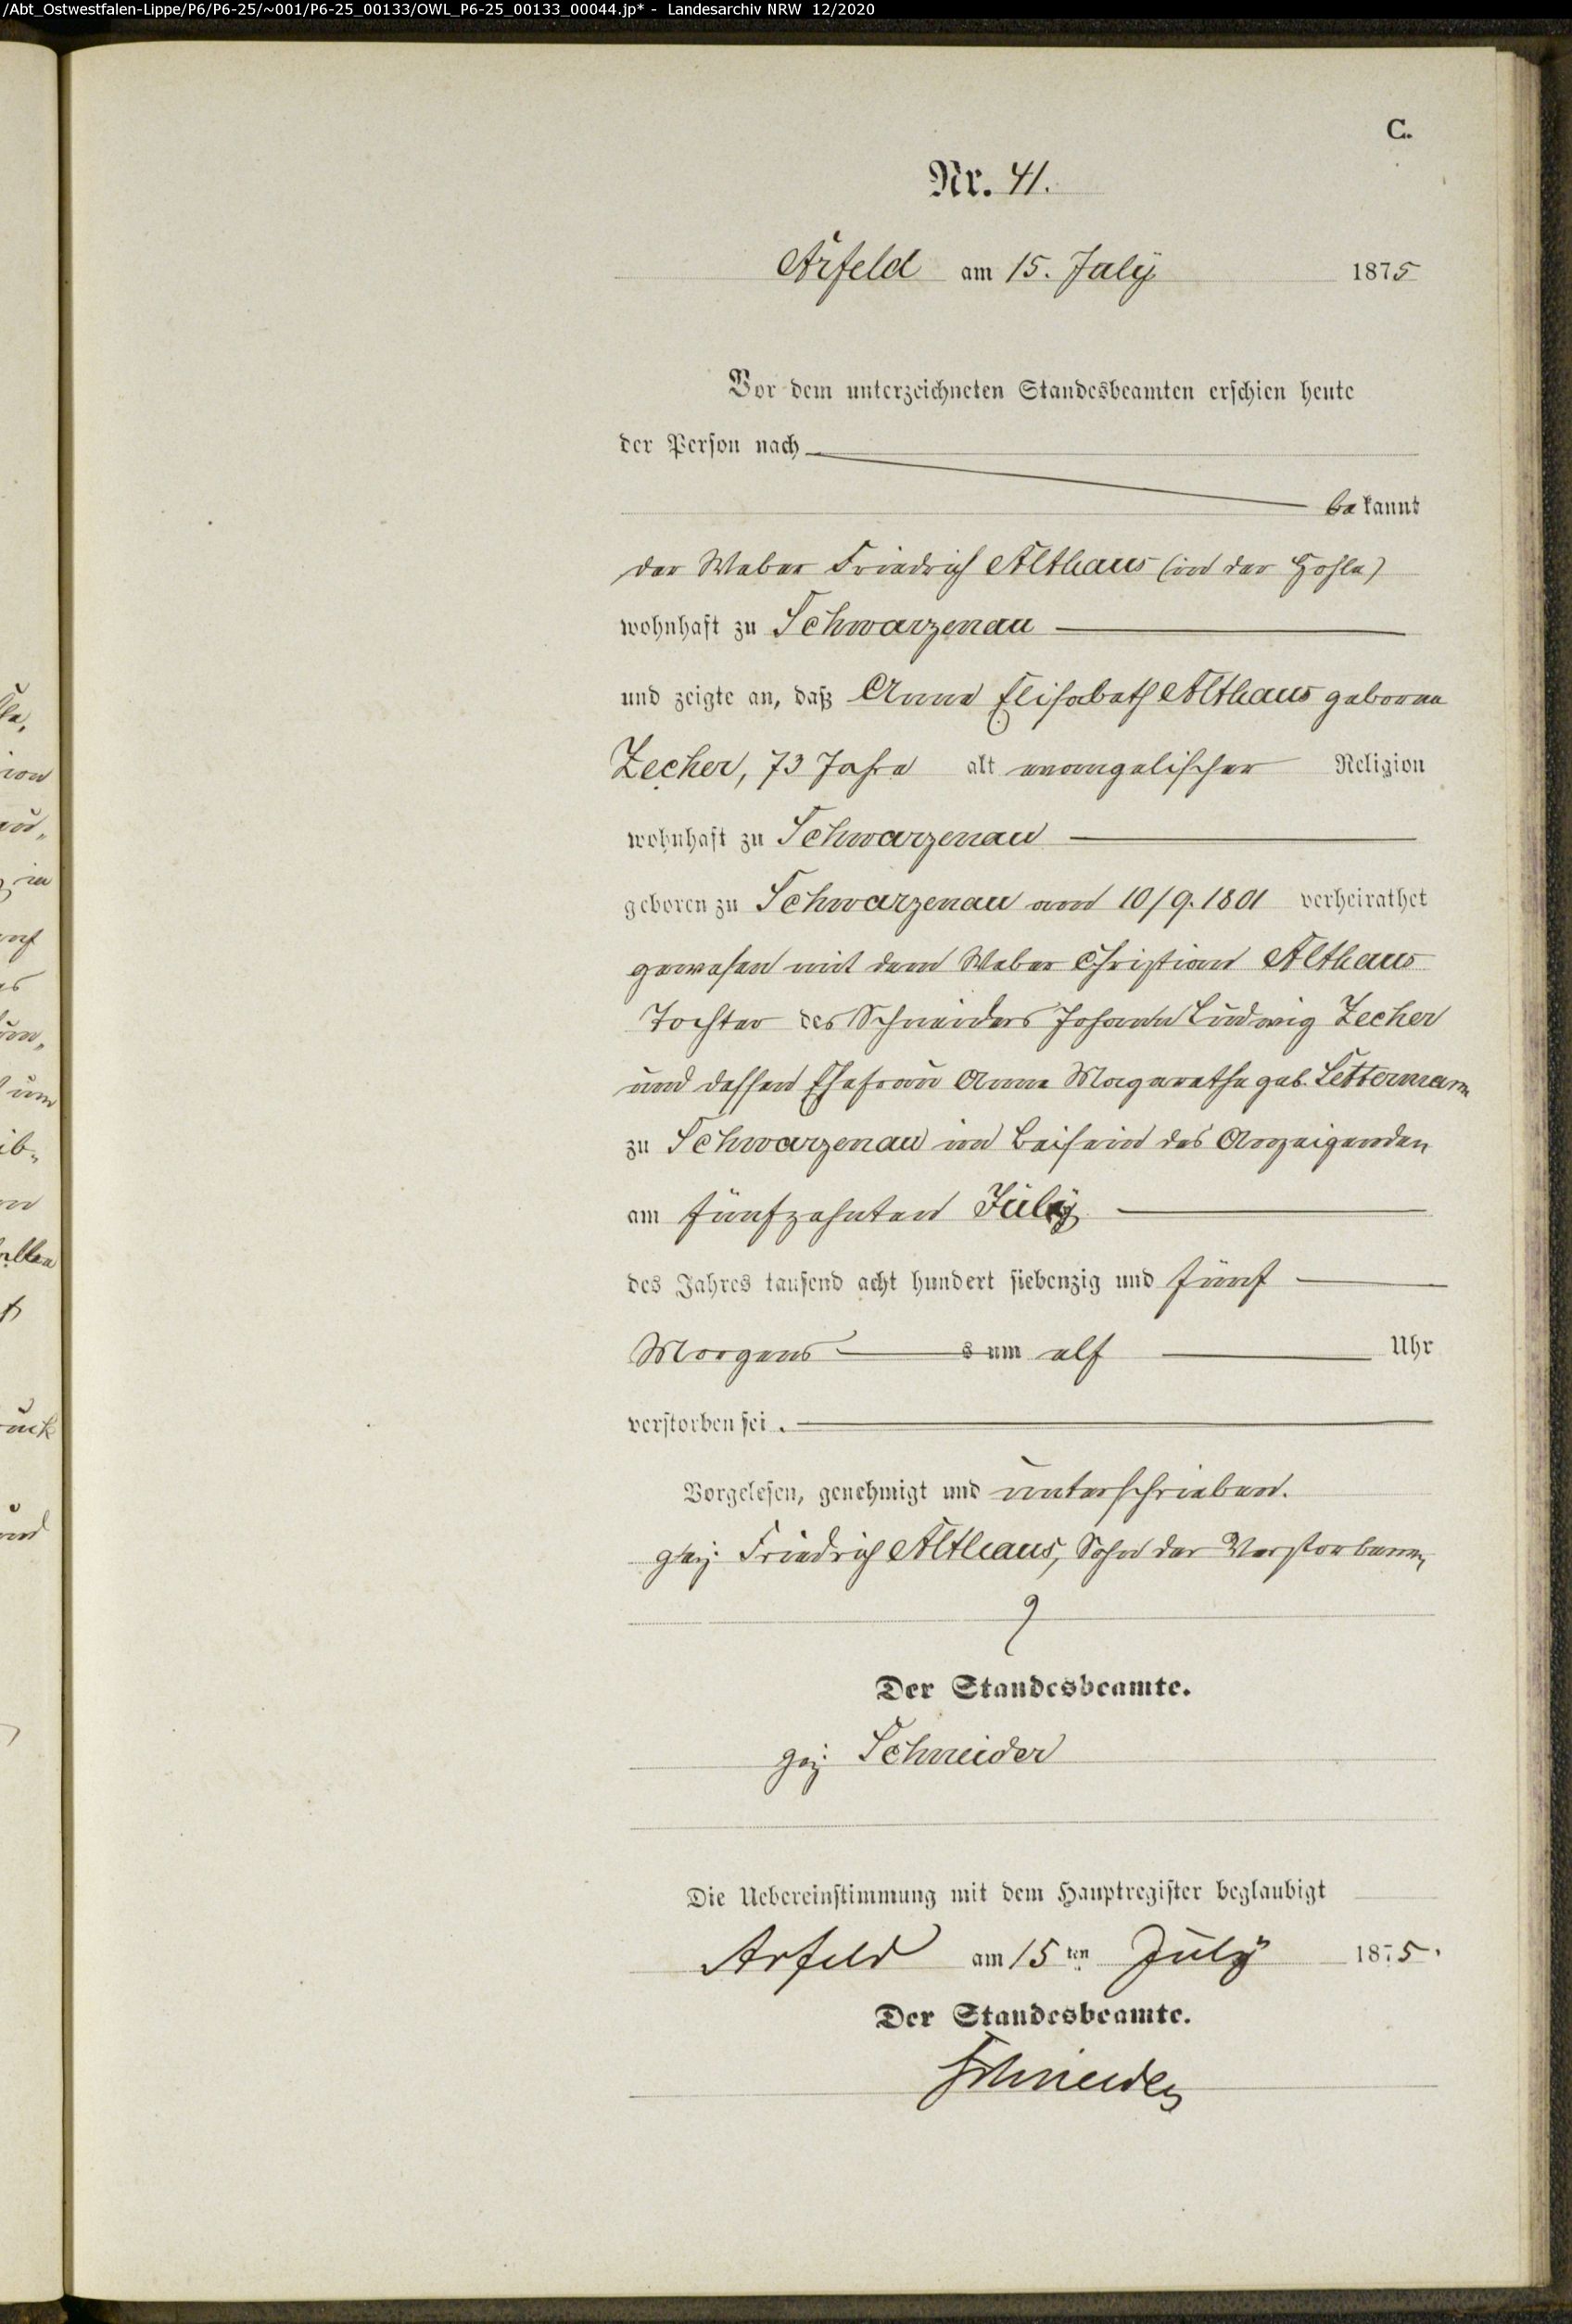 /Abt_Ostwestfalen-Lippe/P6/P6-25/~001/P6-25_00133/OWL_P6-25_00133_00044.jp* - Landesarchiv NRW 12/2020
C.
Nr. 41.
Arfeld am 15. July 1875
Vor dem unterzeichneten Standesbeamten erschien heute
der Person nach
bekannt
der Weber Friedrich Althaus (in der Hohle)
wohnhaft zu Schwarzenau
und zeigte an, daß Anna Elisabeth Althaus geborne
Zecher, 73 Jahre alt evangelischer Religion
wohnhaft zu Schwarzenau
geboren zu Schwarzenau am 10/9. 1801 verheirathet
gewesen mit dem Weber Christian Althaus
Tochter des Schneiders Johann Ludwig Zecher
und dessen Ehefrau Anna Magarethe geb. Lettermann
zu Schwarzenau im Beisein des Anzeigenden
am fünfzehnten July
des Jahres tausend acht hundert siebenzig und fünf
Morgens s um elf Uhr
verstorben sei.
Vorgelesen, genehmigt und unterschrieben.
gez. Friedrich Althaus, Sohn der Verstorbenen
Der Standesbeamte.
gez. Schneider
Die Uebereinstimmung mit dem Hauptregister beglaubigt
Arfeld am 15ten July 1875.
Der Standesbeamte.
Schneider